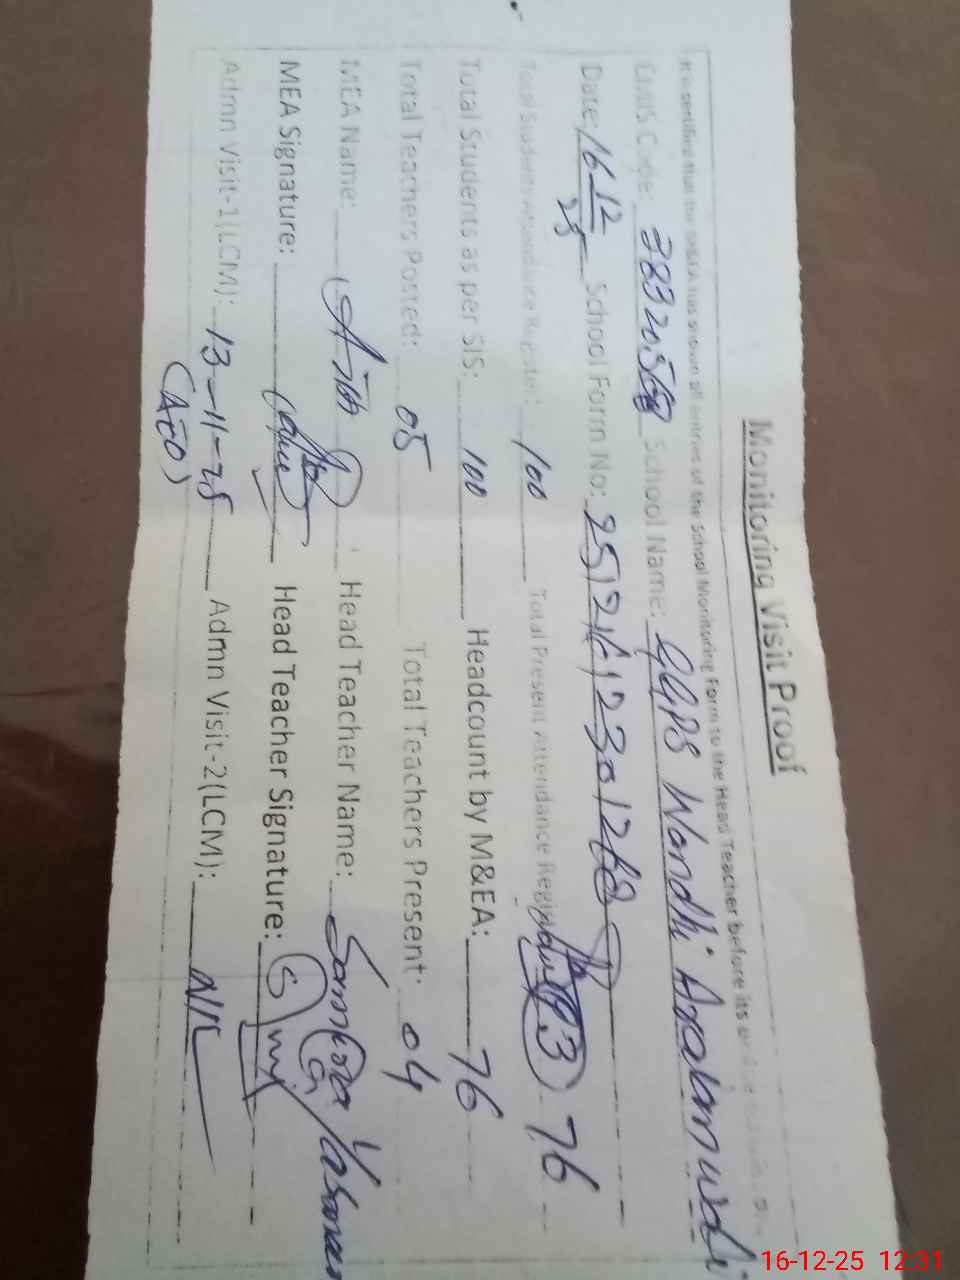 Monitoring Visit Proof
It is certified that the M&EA has shown all entries of the School Monitoring Form to the Head Teacher before its
EMIS Code: 3832050 School Name: GGPS Wondhi
Date: 16-12-25 School Form No: 25121612301268
Total Students Attendance Register: 100 Total Present Attendance Register 76
Total Students as per SIS: 100 Headcount by M&EA: 76
Total Teachers Posted: 05 Total Teachers Present: 04
MEA Name: Head Teacher Name:
MEA Signature: Head Teacher Signature:
Admn Visit-1(LCM): 13-11-25 (AEO) Admn Visit-2(LCM): NIL
16-12-25 12:31